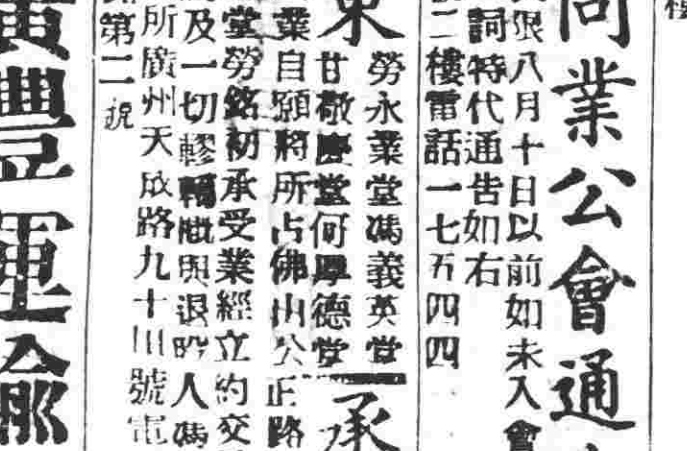 同業公會通
限八月十日以前如未入會
詞特代通告如右
二樓電話一七五四四
東
勞永業堂馮義英堂
甘敬慶堂何厚德堂
承
業自願將所占佛山公正路
堂勞銘初承受業經立約交
及一切轇轕概與退股人馮
所廣州天成路九十川號電
第二
廣豐運